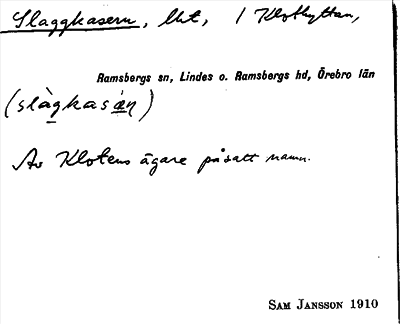 Slaggkasern, lht, / Klothyttan,
Ramsbergs sn, Lindes o. Ramsbergs hd, Örebro län
(slàgkasǽ̣ṇ)
Av Klotens ägare påsatt namn.
SAM JANSSON 1910